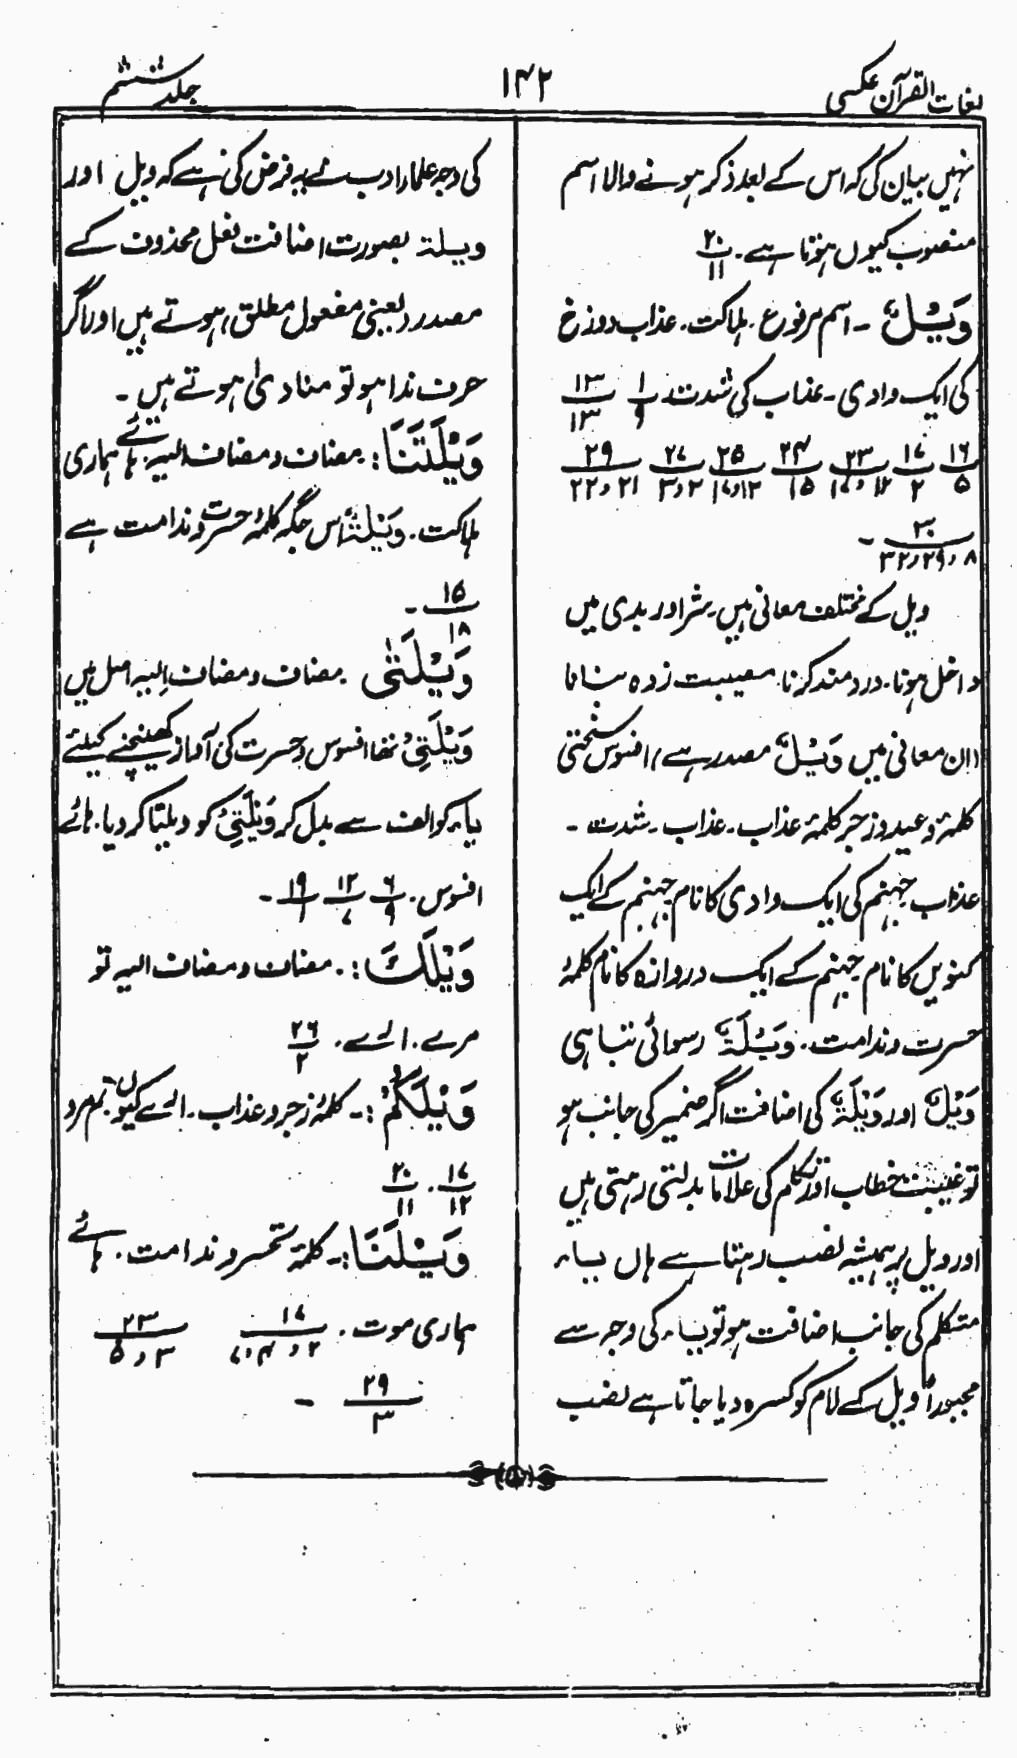 لغات القرآن عکسی
۱۴۲
جلد ششم
نہیں بیان کی کہ اس کے بعد ذکر ہونے والا اسم
منصوب کیوں ہوتا ہے۔ ۲۰/۱۱
وَیْلٌ ۔ اسم مرفوع۔ ہلاکت۔ عذاب دوزخ
کی ایک وادی۔ عذاب کی شدت ۱/۹ ۱۳/۱۳
۱۶/۵ ۱۷/۲ ۲۳/۱۲ و ۱۷ ۲۴/۱۵ ۲۵/۱۲ و ۱۷ ۲۷/۲ و ۳ ۲۹/۲۱ و ۲۲
۳۰/۸ و ۲۹ و ۳۲ ۔
ویل کے مختلف معانی ہیں۔ شر اور بدی میں
داخل ہونا۔ دردمند کرنا۔ مصیبت زدہ بنانا
ان معانی میں وَیْلٌ مصدر ہے، افسوس سختی
کلمۂ وعید و زجر کلمۂ عذاب۔ عذاب۔ شدت ۔
عذاب جہنم کی ایک وادی کا نام جہنم کے ایک
کنویں کا نام جہنم کے ایک دروازہ کا نام کلمۂ
حسرت و ندامت۔ وَیْلَۃٌ رسوائی تباہی
وَیْلٌ اور وَیْلَۃٌ کی اضافت اگر ضمیر کی جانب ہو
تو غیبت خطاب اور تکلم کی علامات بدلتی رہتی ہیں
اور ویل پر ہمیشہ نصب رہتا ہے ہاں یاء
متکلم کی جانب اضافت ہو تو یاء کی وجہ سے
مجبوراً ویل کے لام کو کسرہ دیا جاتا ہے نصب
کی وجہ علماء ادب نے یہ فرض کی ہے کہ ویل اور
ویلۃ بصورت اضافت فعل محذوف کے
مصدر (یعنی مفعول مطلق) ہوتے ہیں اور اگر
حرف ندا ہو تو منادیٰ ہوتے ہیں ۔
وَیْلَتَنَا: مضاف و مضاف الیہ۔ ہائے ہماری
ہلاکت۔ وَیْلَۃٌ اس جگہ کلمۂ حسرت و ندامت ہے
۱۵/۱۸ ۔
وَیْلَتٰی ۔ مضاف و مضاف الیہ اصل میں
وَیْلَتِیْ تھا افسوس و حسرت کی آواز کھینچنے کیلئے
یاء کو الف سے بدل کر وَیْلَتِیْ کو ویلتا کر دیا۔ ہائے
افسوس۔ ۶/۹ ۱۲/۷ ۱۹/۱ ۔
وَیْلَكَ :۔ مضاف و مضاف الیہ تو
مرے۔ ارے۔ ۲۶/۲
وَیْلَکُمْ :۔ کلمۂ زجر و عذاب۔ ارے کیوں۔ تم مرو
۱۷/۱۲ ۔ ۲۰/۱۱
وَیْلَنَا :۔ کلمۂ تحسر و ندامت۔ ہائے
ہماری موت۔ ۱۷/۲ و ۴ و ۷ ۲۳/۳ و ۵
۲۹/۳ ۔